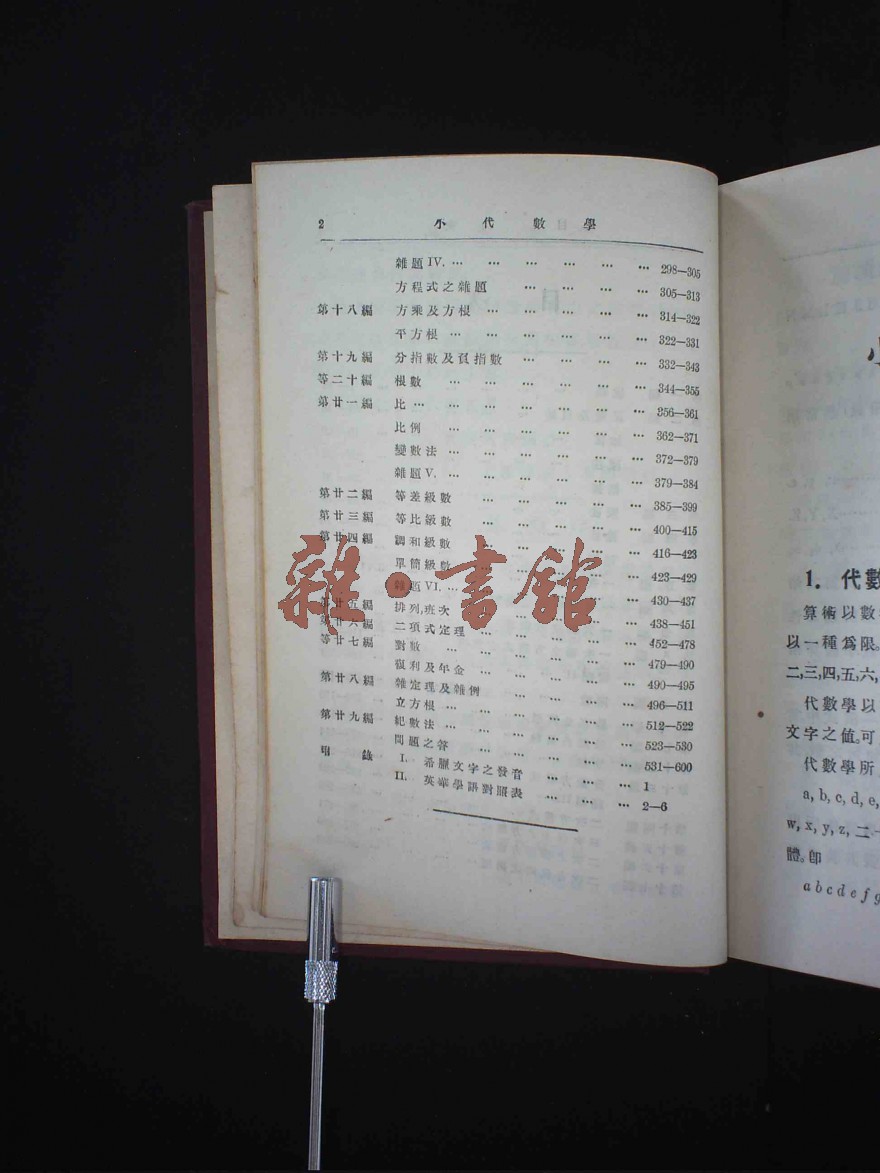 2 小代數學
雜題 IV. … … … … … … 298—305
方程式之雜題 … … … … 305—313
第十八編 方乘及方根 … … … … … 314—322
平方根 … … … … … … 322—331
第十九編 分指數及負指數 … … … … 332—343
等二十編 根數 … … … … … … 344—355
第廿一編 比 … … … … … … … 356—361
比例 … … … … … … 362—371
變數法 … … … … … … 372—379
雜題 V. … … … … … … 379—384
第廿二編 等差級數 … … … … … 385—399
第廿三編 等比級數 … … … … … 400—415
第廿四編 調和級數 … … … … … 416—423
單簡級數 … … … … … 423—429
雜題 VI. … … … … … … 430—437
第廿五編 排列,班次 … … … … … 438—451
第廿六編 二項式定理 … … … … … 452—478
等廿七編 對數 … … … … … … 479—490
復利及年金 … … … … … 490—495
第廿八編 雜定理及雜例 … … … … 496—511
立方根 … … … … … … 512—522
第廿九編 紀數法 … … … … … … 523—530
問題之答 … … … … … 531—600
附錄 I. 希臘文字之發音 … … … … 1
II. 英華學語對照表 … … … … 2—6
雜·書館
1. 代數
算術以數
以一種爲限。
二,三,四,五,六,
代數學以
文字之値。可
代數學所
a, b, c, d, e,
w, x, y, z, 二十
體。卽
a b c d e f g